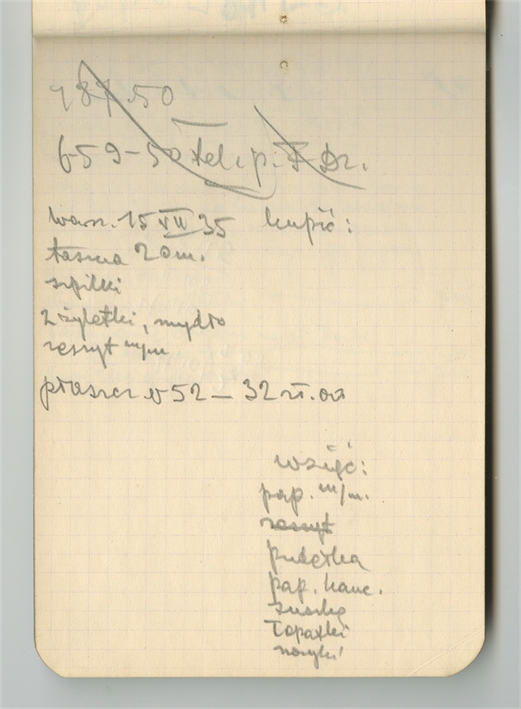 787.50
659-50 tel. p. I Dr.
warsz. 15 VII 35 kupić:
taśma 20 m.
szpilki
2 żyletki, mydło
zeszyt m/m
płaszcz v 52 – 32 zł. 00
wziąć:
pap. m/m.
zeszyt
pudełka
pap. kanc.
łopatki
nożyki